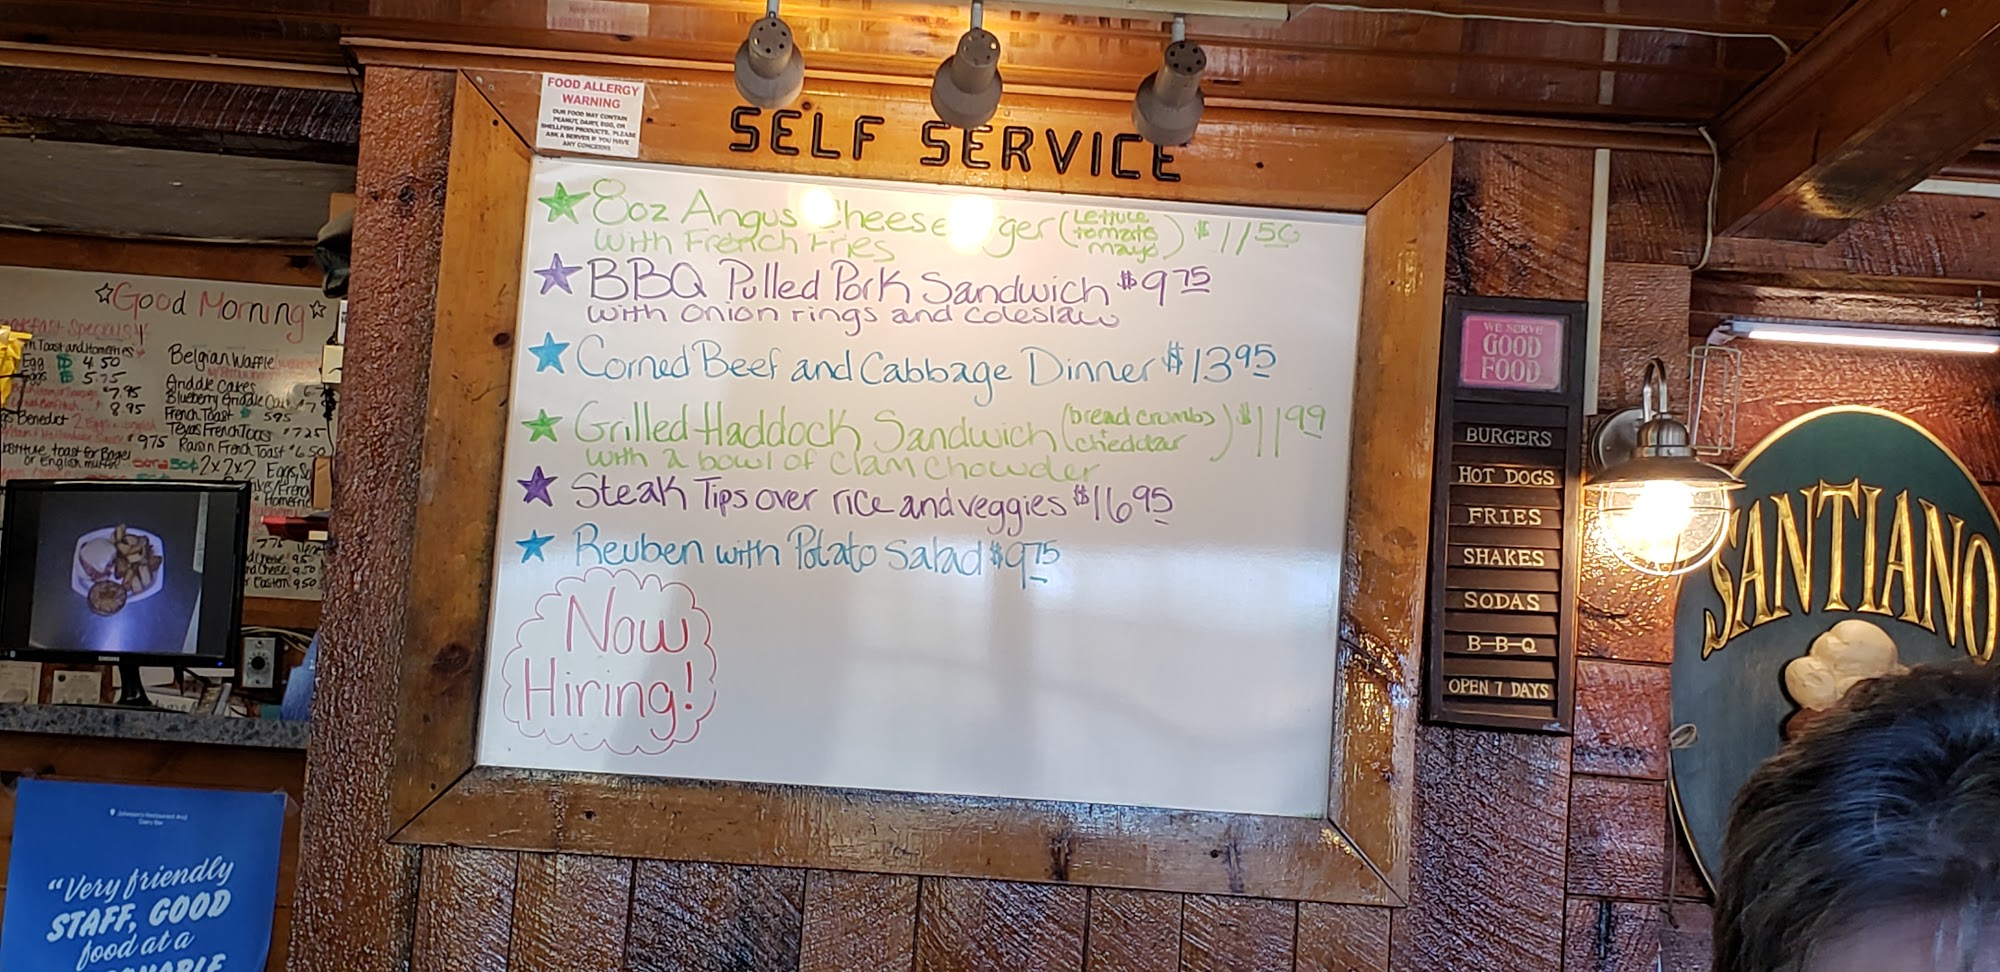 FOOD ALLERGY
WARNING
OUR FOOD MAY CONTAIN
PEANUT, DAIRY, EGG, OR
SHELLFISH PRODUCTS. PLEASE
ASK A SERVER IF YOU HAVE
ANY CONCERNS
SELF SERVICE
8oz Angus Cheese ger (Lettuce tomato mayo) $11 50
with French Fries
BBQ Pulled Pork Sandwich $9 75
with onion rings and coleslaw
Corned Beef and Cabbage Dinner $13 95
Grilled Haddock Sandwich (bread crumbs cheddar) $11 99
with a bowl of clam chowder
Steak Tips over rice and veggies $16 95
Reuben with Potato Salad $9 75
Now
Hiring!
Good Morning
Specials
Toast and Homefries
Egg 4.50
Eggs 5.75
7.95
8.95
Benedict 2 Eggs
$9.75
toast for Bagel
or English muffin
Belgian Waffle
Griddle Cakes
Blueberry Griddle
French Toast 5.95
Texas French Toast $7.25
Raisin French Toast $6.50
2x2x2 Eggs,
WE SERVE
GOOD
FOOD
BURGERS
HOT DOGS
FRIES
SHAKES
SODAS
B-B-Q
OPEN 7 DAYS
SANTIANO
Johnson's Restaurant And
Dairy Bar
"Very friendly
STAFF, GOOD
food at a